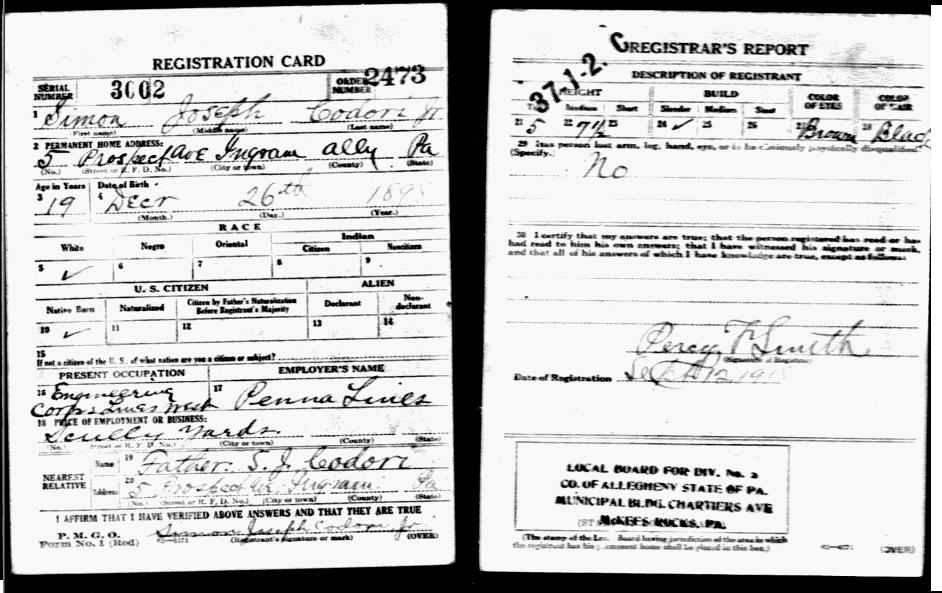 REGISTRATION CARD
SERIAL NUMBER 3002 ORDER NUMBER 2473
1 Simon Joseph Codori Jr
(First name) (Middle name) (Last name)
2 PERMANENT HOME ADDRESS:
5 Prospect Ave Ingram ally Pa
(No.) (Street or R. F. D. No.) (City or town) (County) (State)
Age in Years Date of Birth
3 19 4 Decr 26th 189
(Month.) (Day.) (Year.)
RACE
White Negro Oriental Indian
Citizen Noncitizen
5 ✓ 6 7 8 9
U. S. CITIZEN ALIEN
Native Born Naturalized Citizen by Father's Naturalization Before Registrant's Majority Declarant Non-declarant
10 ✓ 11 12 13 14
15
If not a citizen of the U. S., of what nation are you a citizen or subject?
PRESENT OCCUPATION EMPLOYER'S NAME
16 Engineering 17
Corps Lines West Penna Lines
18 PLACE OF EMPLOYMENT OR BUSINESS:
Scully Yards
(No.) (Street or R. F. D. No.) (City or town) (County) (State)
NEAREST RELATIVE
Name 19 Father. S. J. Codori
Address 20 5 Prospect Ave Ingram Pa
(No.) (Street or R. F. D. No.) (City or town) (County) (State)
I AFFIRM THAT I HAVE VERIFIED ABOVE ANSWERS AND THAT THEY ARE TRUE
P. M. G. O.
Form No. 1 (Red) Simon Joseph Codori Jr
(Registrant's signature or mark) (OVER)
37-1-2. C REGISTRAR'S REPORT
DESCRIPTION OF REGISTRANT
HEIGHT BUILD COLOR OF EYES COLOR OF HAIR
Medium Short Slender Medium Stout
21 5 22 7½ 23 24 ✓ 25 26 27 Brown 28 Black
29 Has person lost arm, leg, hand, eye, or is he obviously physically disqualified?
(Specify.)
No
30 I certify that my answers are true; that the person registered has read or has
had read to him his own answers; that I have witnessed his signature or mark,
and that all of his answers of which I have knowledge are true, except as follows:
Percy F. Smith
(Signature of Registrar)
Date of Registration Sept 12, 191
LOCAL BOARD FOR DIV. No. 2
CO. OF ALLEGHENY STATE OF PA.
MUNICIPAL BLDG. CHARTIERS AVE
McKEES ROCKS, PA.
(The stamp of the Local Board having jurisdiction of the area in which
the registrant has his permanent home shall be placed in this box.)
(OVER)